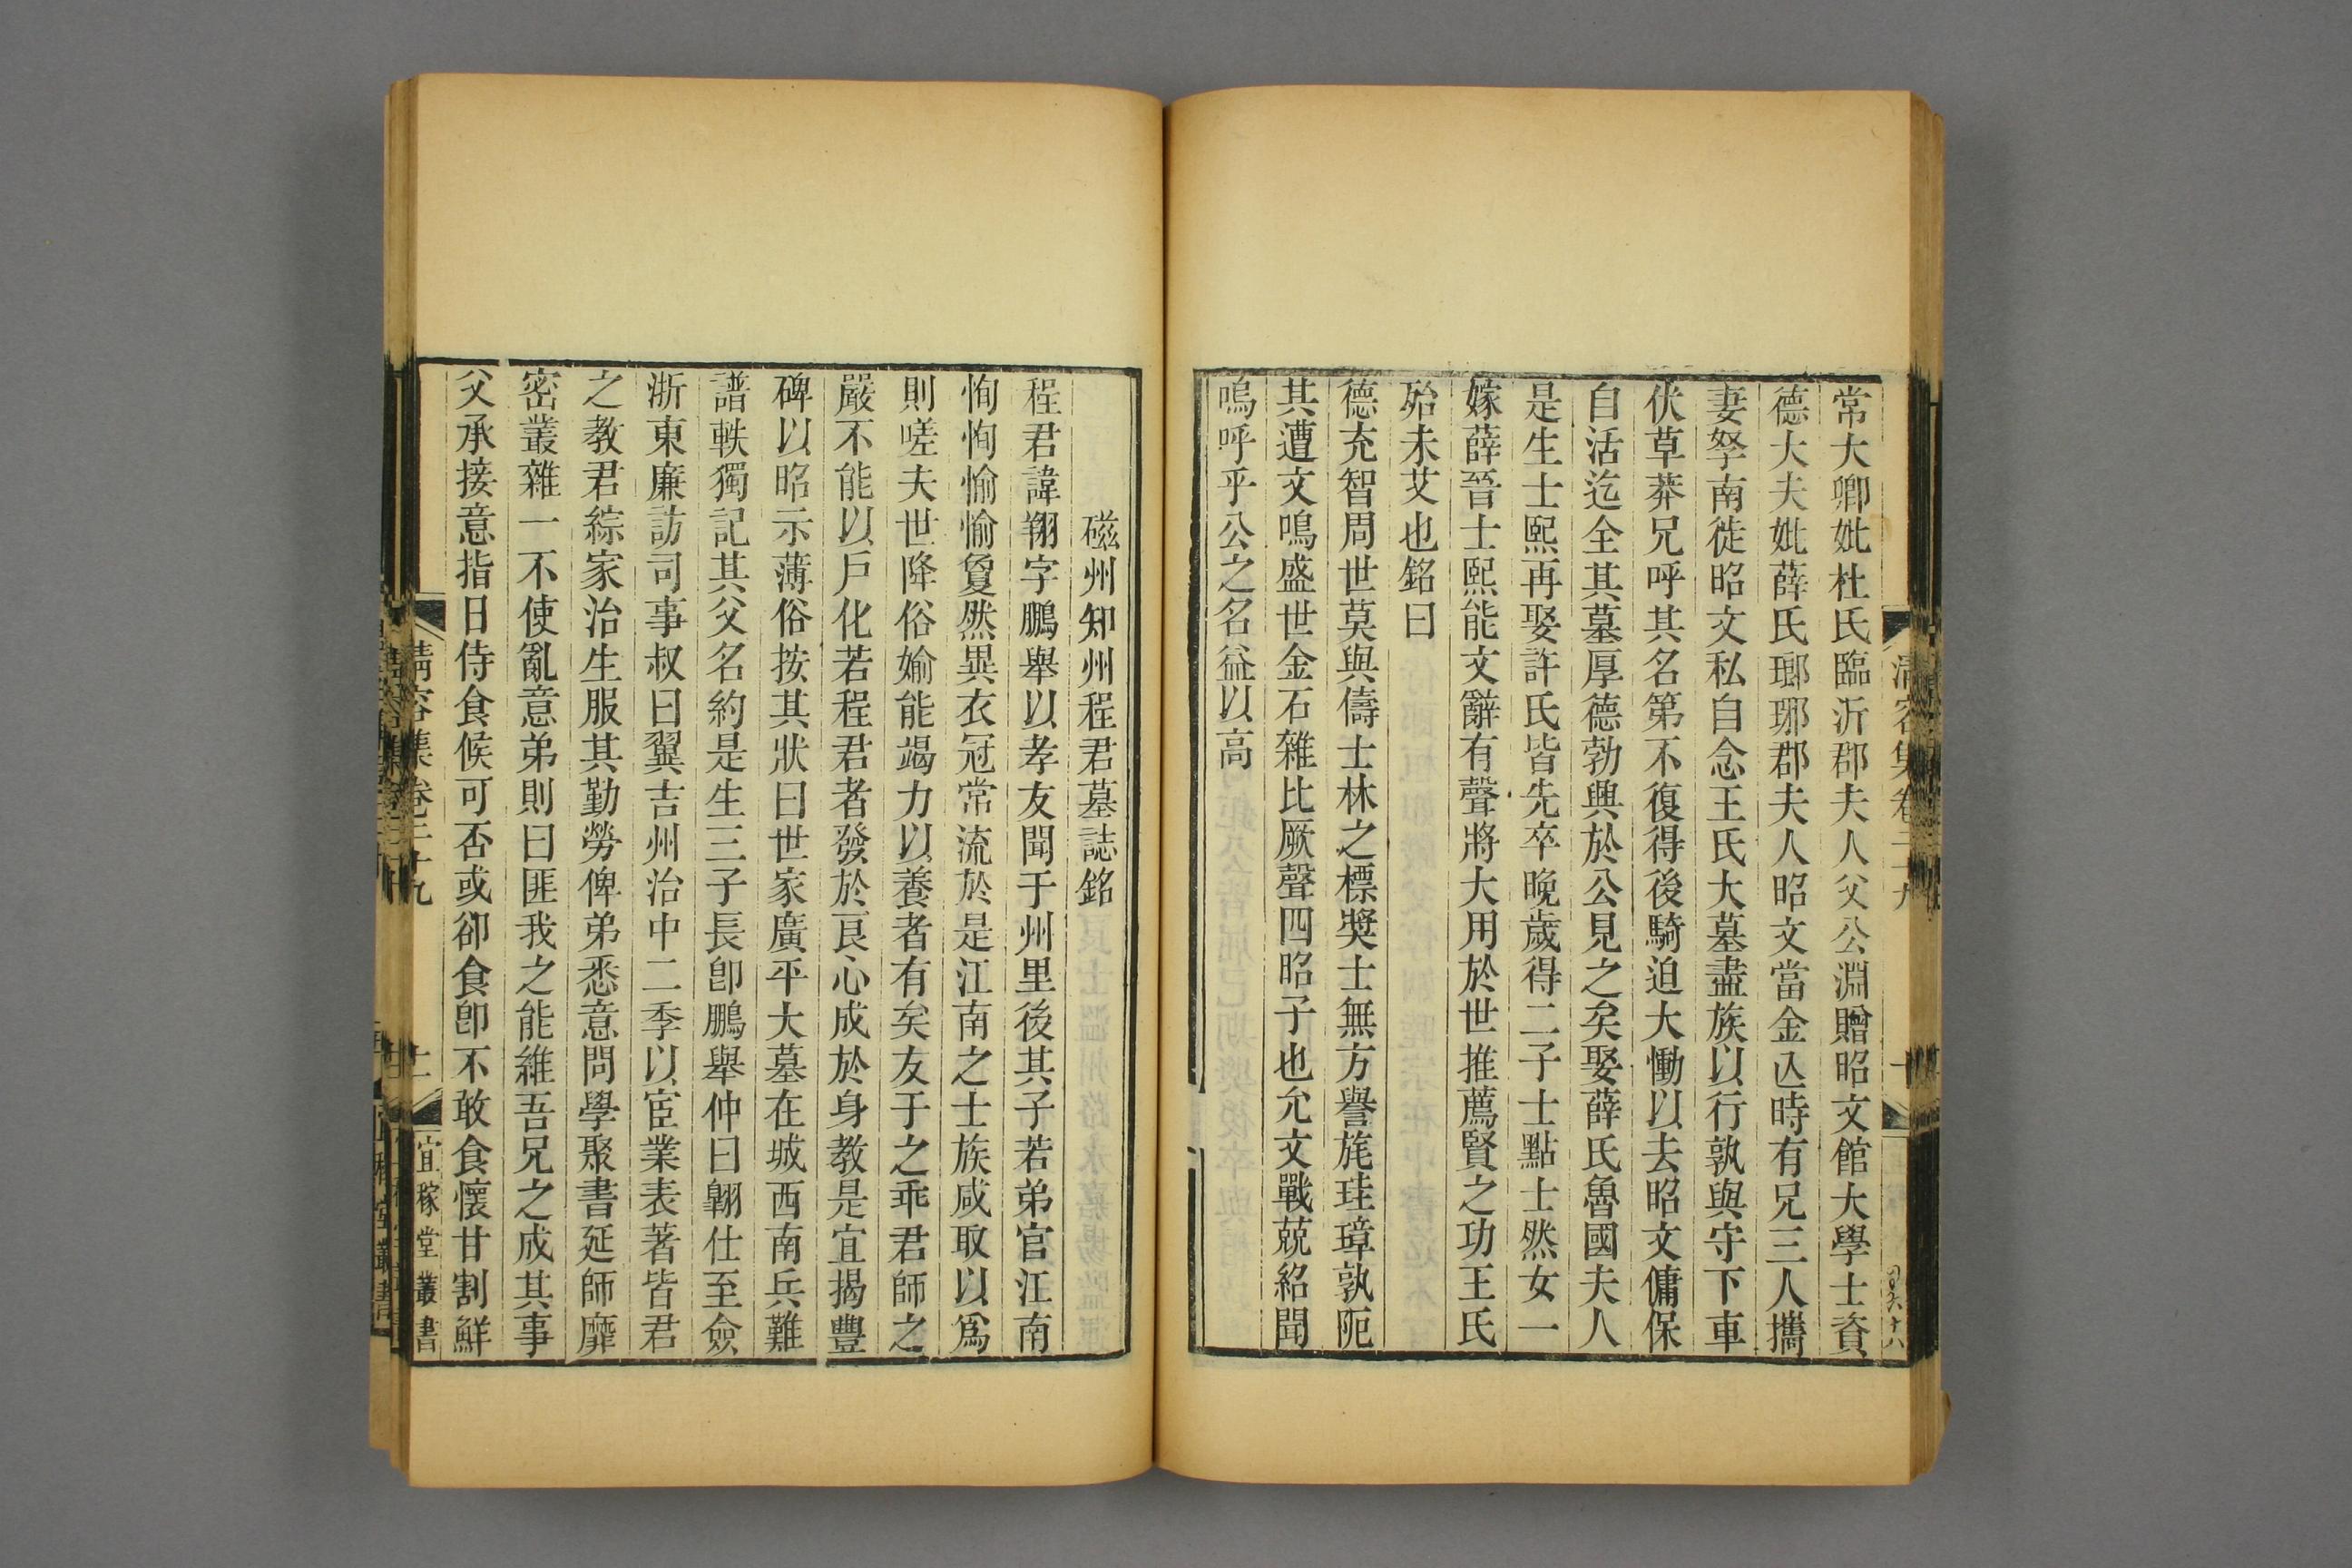 常大卿妣杜氏臨沂郡夫人父公淵贈昭文館大學士資
德大夫妣薛氏瑯琊郡夫人昭文當金亾時有兄三人攜
妻孥南徙昭文私自念王氏大墓盡族以行孰與守下車
伏草莽兄呼其名第不復得後騎迫大慟以去昭文傭保
自活迄全其墓厚德勃興於公見之矣娶薛氏魯國夫人
是生士熙再娶許氏皆先卒晚歲得二子士點士然女一
嫁薛晉士熙能文辭有聲將大用於世推薦賢之功王氏
殆未艾也銘曰
德充智周世莫與儔士林之標獎士無方譽旄珪璋孰阨
其遭文鳴盛世金石雜比厥聲四昭子也允文戰兢紹聞
嗚呼乎公之名益以高
磁州知州程君墓誌銘
程君諱翔字鵬舉以孝友聞于州里後其子若弟官江南
恂恂愉愉敻然異衣冠常流於是江南之士族咸取以爲
則嗟夫世降俗媮能竭力以養者有矣友于之乖君師之
嚴不能以戸化若程君者發於良心成於身教是宜揭豐
碑以昭示薄俗按其狀曰世家廣平大墓在城西南兵難
譜軼獨記其父名約是生三子長卽鵬舉仲曰翺仕至僉
浙東廉訪司事叔曰翼吉州治中二季以宦業表著皆君
之教君綜家治生服其勤勞俾弟悉意問學聚書延師靡
密叢雜一不使亂意弟則曰匪我之能維吾兄之成其事
父承接意指日侍食候可否或卻食卽不敢食懷甘割鮮
清容集卷二十九
宜稼堂叢書